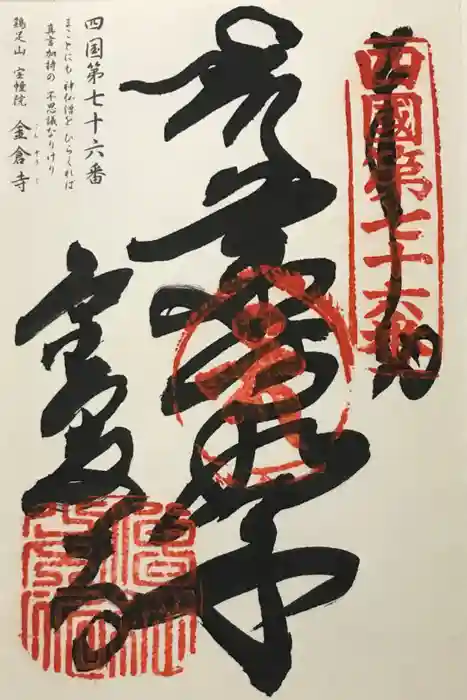 奉納
四國第七十六番
薬師如来
金倉寺
四国第七十六番
まことにも 神仏僧を ひらくれば
真言加持の 不思議なりけり
鶏足山 宝幢院 金倉寺
こん ぞう じ